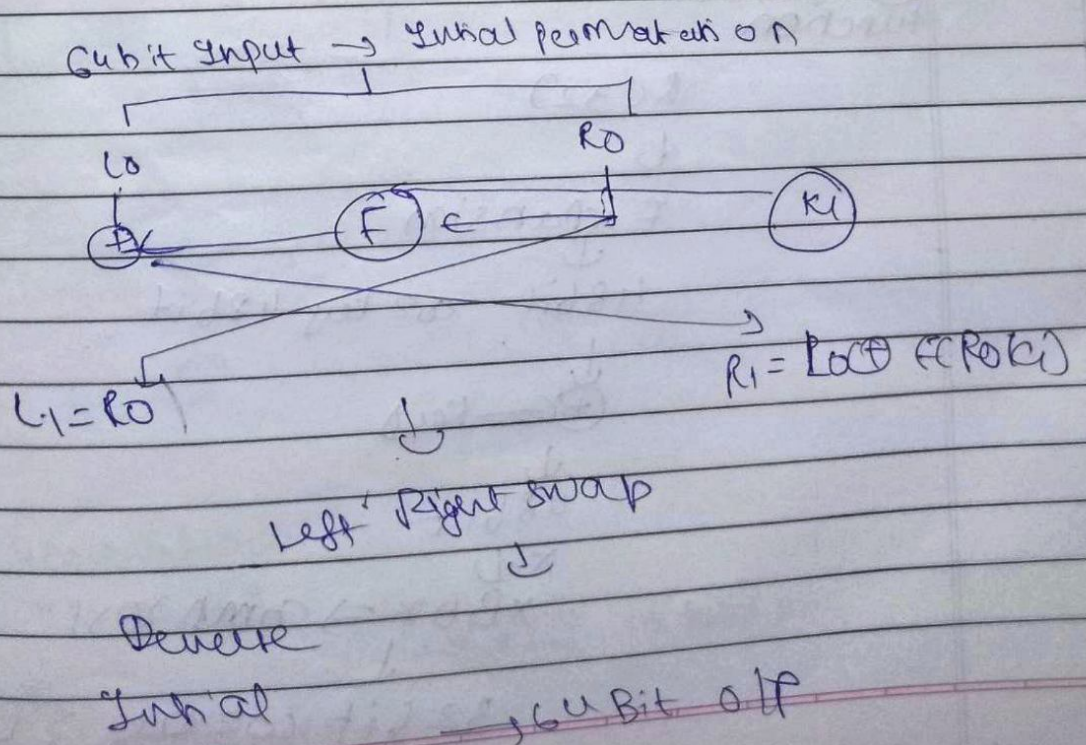 64 bit Input → Initial permutation
L0 R0
⊕ F Ki
L1 = R0 R1 = L0 ⊕ F(R0 Ki)
Left Right swap
Reverse
Initial → 64 Bit O/P